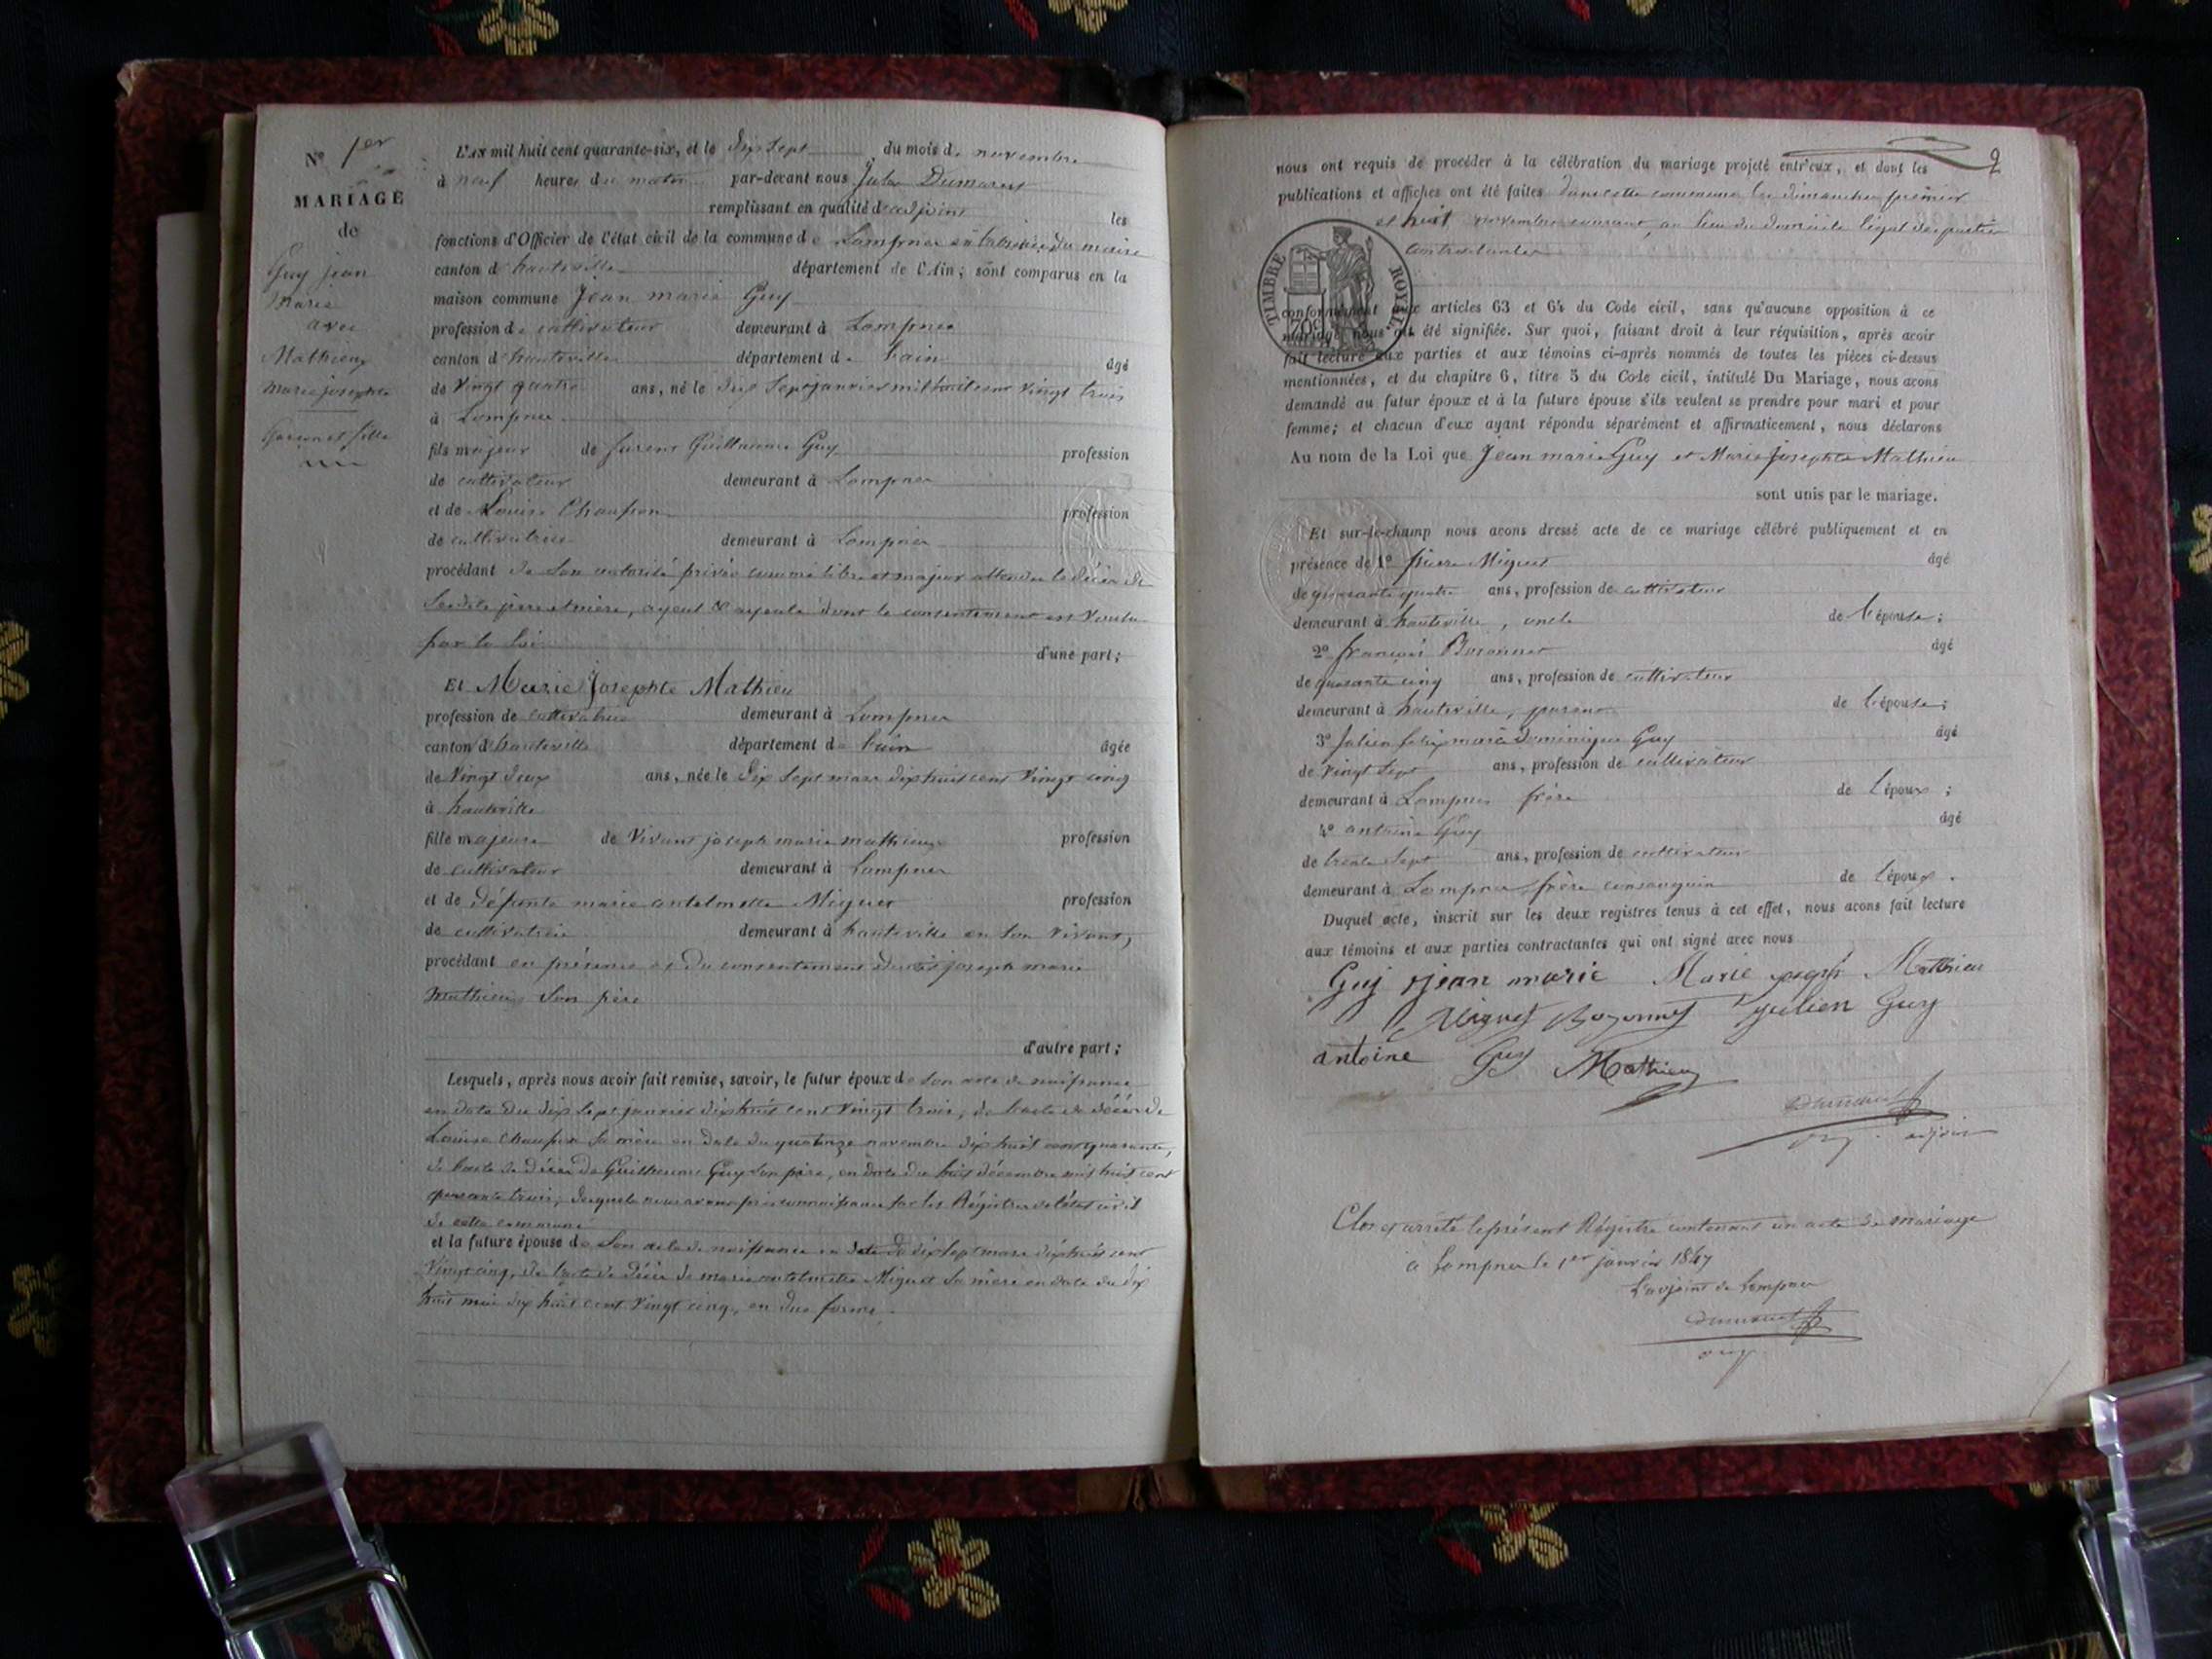 N° 1er
MARIAGE
de
Guy jean
Marie
avec
Mathieu
Marie josephte
Garçon et fille
L'AN mil huit cent quarante-six, et le dix sept du mois de novembre
à neuf heures du matin par-devant nous Jules Dumarest
remplissant en qualité d'adjoint les
fonctions d'Officier de l'état civil de la commune de Lompnes du maire
canton d'hauteville département de l'Ain; sont comparus en la
maison commune Jean marie Guy
profession de cultivateur demeurant à Lompnes
canton d'hauteville département de l'ain âgé
de vingt quatre ans, né le dix sept janvier mil huit cent vingt trois
à Lompnes
fils majeur de furent Guillaume Guy profession
de cultivateur demeurant à Lompnes
et de Louise Chaupon profession
de cultivatrice demeurant à Lompnes
procédant de son autorité privée comme libre et majeur attendu le décès de
ses dits père et mère, ayeul & ayeule dont le consentement est voulu
par la loi d'une part;
Et Marie Josephte Mathieu
profession de cultivatrice demeurant à Lompnes
canton d'hauteville département de l'ain âgée
de vingt deux ans, née le dix sept mars dix huit cent vingt cinq
à hauteville
fille majeure de vivant joseph marie mathieu profession
de cultivateur demeurant à Lompnes
et de défunte marie antelmette Miguet profession
de cultivatrice demeurant à hauteville en son vivant,
procédant en présence et du consentement dudit joseph marie
Mathieu son père
d'autre part;
Lesquels, après nous avoir fait remise, savoir, le futur époux de son acte de naissance
en date du dix sept janvier dix huit cent vingt trois, de l'acte de décès de
Louise Chaupon sa mère en date du quatorze novembre dix huit cent quarante,
de l'acte de décès de Guillaume Guy son père, en date du huit décembre mil huit cent
quarante trois, desquels nous avons pris connaissance sur les Régistres de l'état civil
de cette commune
et la future épouse de son acte de naissance en date du dix sept mars dix huit cent
vingt cinq, de l'acte de décès de marie antelmette Miguet sa mère en date du dix
huit mai dix huit cent vingt cinq, en due forme.
2
nous ont requis de procéder à la célébration du mariage projeté entr'eux, et dont les
publications et affiches ont été faites dans cette commune les dimanches premier
et huit novembre courant, au lieu du domicile légal des parties
contractantes
TIMBRE ROYAL
70c
conformément aux articles 63 et 64 du Code civil, sans qu'aucune opposition à ce
mariage nous ait été signifiée. Sur quoi, faisant droit à leur réquisition, après avoir
fait lecture aux parties et aux témoins ci-après nommés de toutes les pièces ci-dessus
mentionnées, et du chapitre 6, titre 5 du Code civil, intitulé Du Mariage, nous avons
demandé au futur époux et à la future épouse s'ils veulent se prendre pour mari et pour
femme; et chacun d'eux ayant répondu séparément et affirmativement, nous déclarons
Au nom de la Loi que Jean marie Guy et Marie Josephte Mathieu
sont unis par le mariage.
Et sur-le-champ nous avons dressé acte de ce mariage célébré publiquement et en
présence de 1° pierre Miguet âgé
de quarante quatre ans, profession de cultivateur
demeurant à hauteville, oncle de l'épouse;
2° françois Bozonnet âgé
de quarante cinq ans, profession de cultivateur
demeurant à hauteville, parent de l'épouse;
3° Julien felix marie Dominique Guy âgé
de vingt sept ans, profession de cultivateur
demeurant à Lompnes frère de l'époux;
4° antoine Guy âgé
de trente sept ans, profession de cultivateur
demeurant à Lompnes, frère consanguin de l'époux.
Duquel acte, inscrit sur les deux registres tenus à cet effet, nous avons fait lecture
aux témoins et aux parties contractantes qui ont signé avec nous
Guy jean marie Marie joseph Mathieu
Miguet Bozonnet julien Guy
antoine Guy Mathieu
Dumarest
adjoint
Clos & arrêté le présent Régistre contenant un acte de mariage
à Lompnes le 1er janvier 1847
L'adjoint de Lompnes
Dumarest